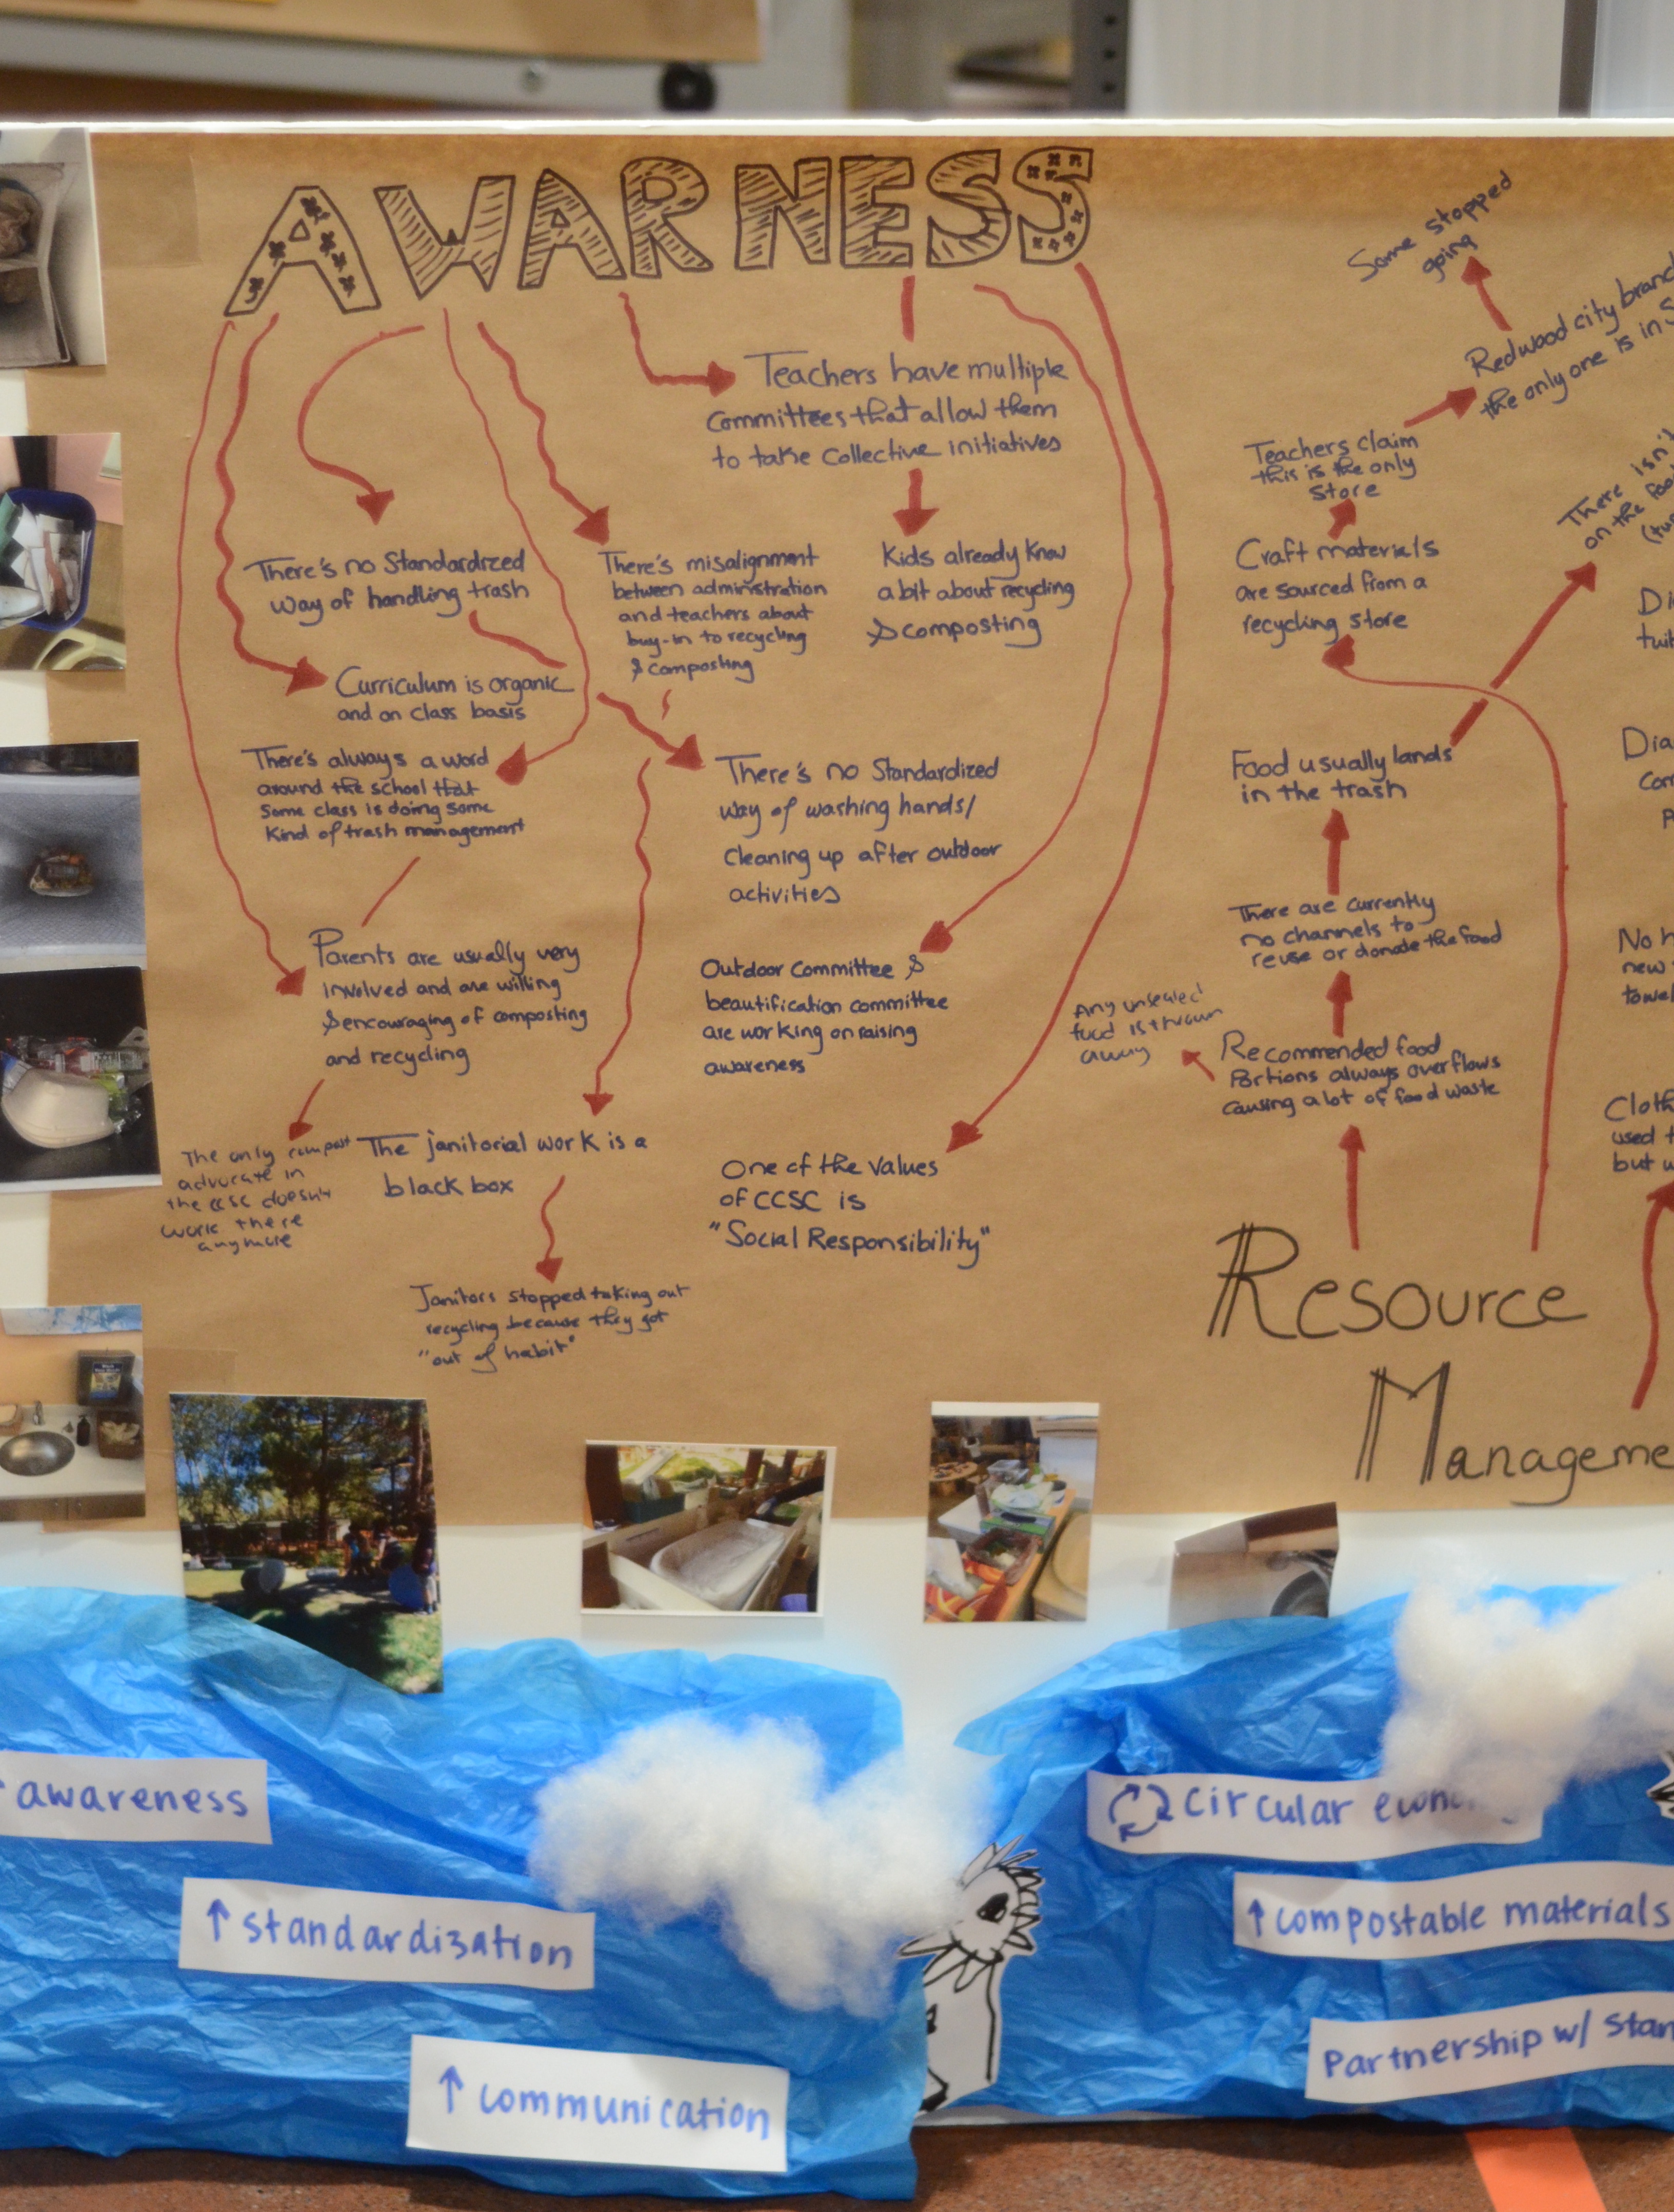 AWARNESS
Teachers have multiple
committees that allow them
to take collective initiatives
There's no Standardized
way of handling trash
There's misalignment
between administration
and teachers about
buy-in to recycling
& composting
Kids already know
a bit about recycling
& composting
Curriculum is organic
and on class basis
There's always a word
around the school that
some class is doing some
kind of trash management
There's no Standardized
way of washing hands/
cleaning up after outdoor
activities
Parents are usually very
involved and are willing
& encouraging of composting
and recycling
Outdoor Committee &
beautification committee
are working on raising
awareness
The only compost
advocate in
the CCSC doesn't
work there
anymore
The janitorial work is a
black box
One of the values
of CCSC is
"Social Responsibility"
Janitors stopped taking out
recycling because they got
"out of habit"
Some stopped
going
Redwood city branch
the only one is in S
Teachers claim
this is the only
store
Craft materials
are sourced from a
recycling store
There isn't
on the foo
(tu
Food usually lands
in the trash
There are currently
no channels to
reuse or donate the food
Any unsealed
food is thrown
away
Recommended food
portions always overflows
causing a lot of food waste
Di
tuit
Dia
Com
P
No h
new
towel
Cloth
used t
but w
Resource
Manageme
awareness
↑ standardization
↑ communication
circular econo
↑ compostable materials
Partnership w/ Stan